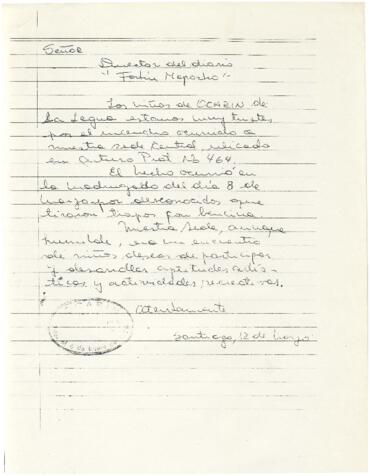 Señor
Director del diario
"Fortin Mapocho"
Los niños de OCARIN de
La Legua estamos muy tristes
por el incendio ocurrido a
nuestra sede Central, ubicado
en Arturo Prat No 464.
El hecho ocurrió en
la madrugada del día 8 de
marzo por desconocidos que
tiraron trapos con bencina
Nuestra sede, aunque
humilde, era un encuentro
de niños deseos de participar
y desarrollar aptitudes artis-
ticas y actividades recreativas.
Atentamente
Santiago, 12 de marzo